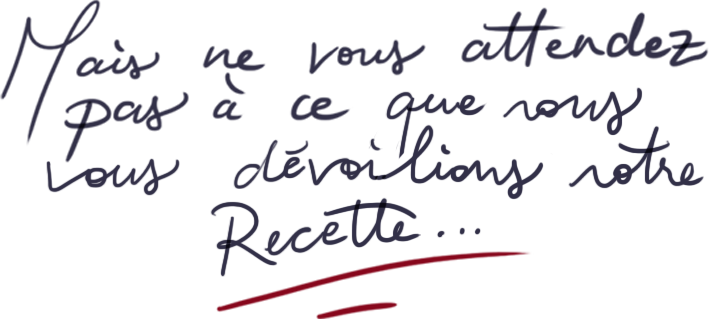 Mais ne vous attendez
pas à ce que nous
vous dévoilions notre
Recette...